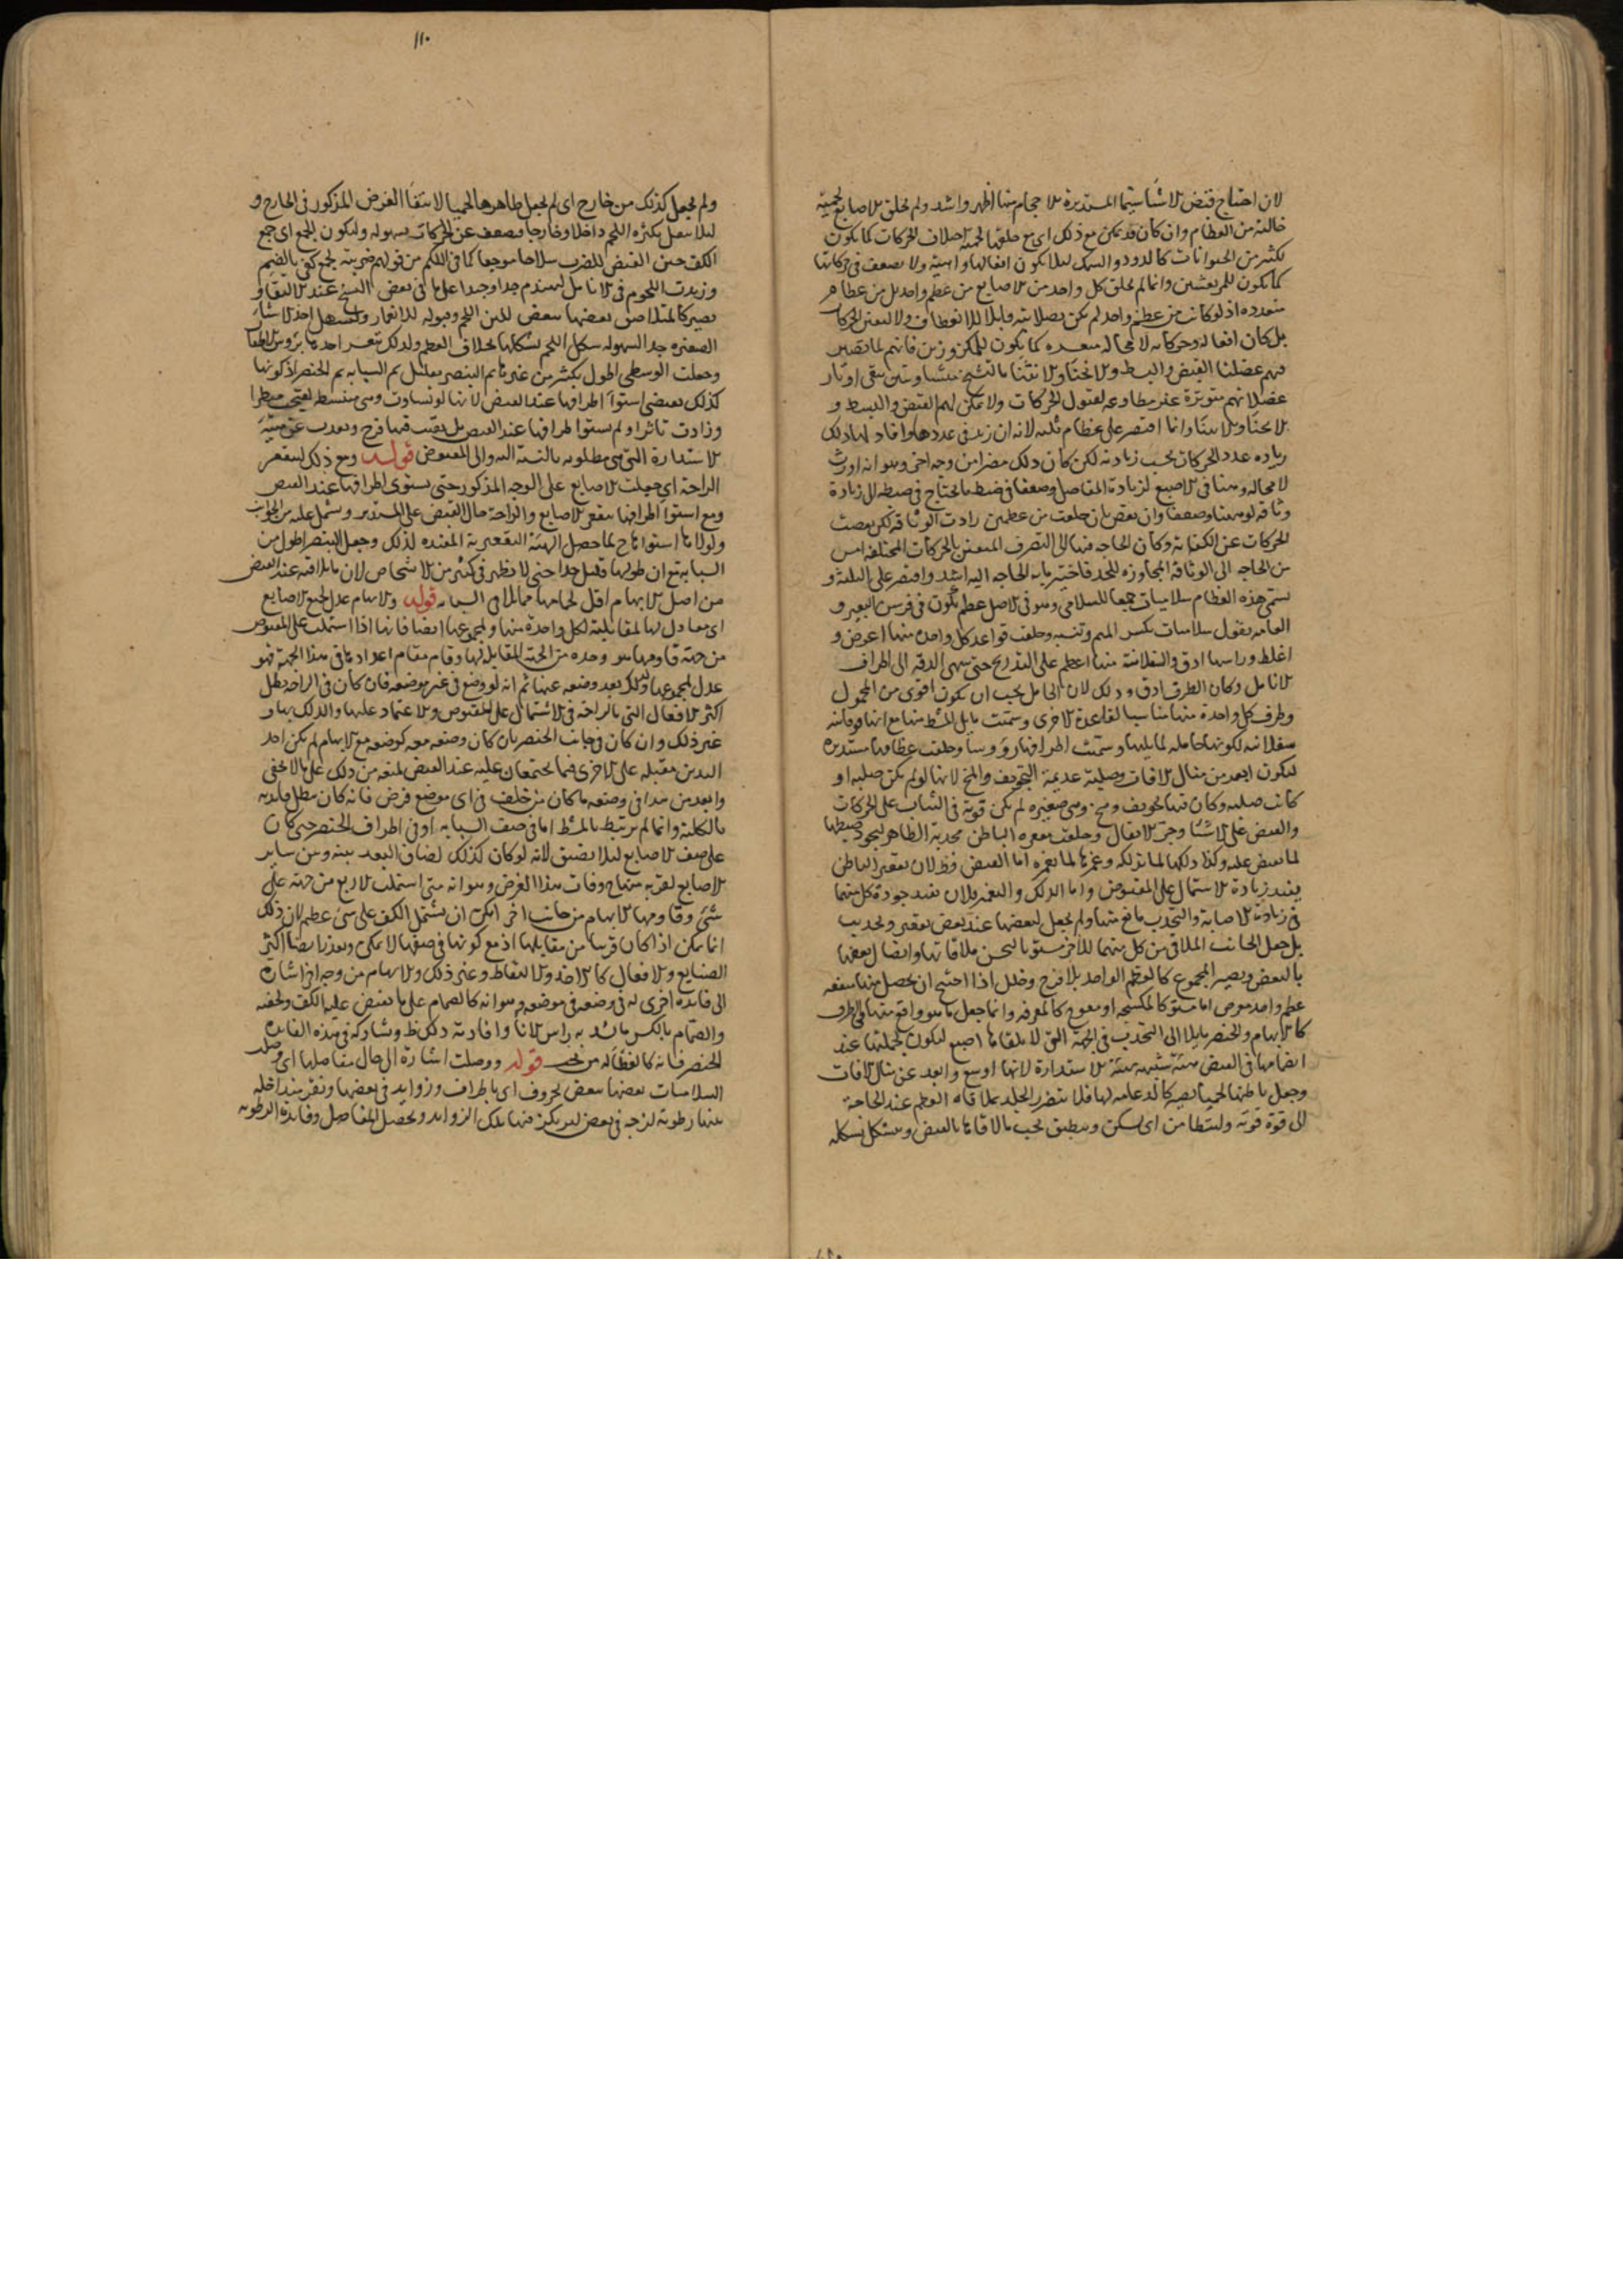 لان احتياج قبض الاشيا سيما المستديرة الاجسام منها اظهر واشد ولم تخلق الاصابع لحمية
خالية من العظام وان كان قد يمكن مع ذلك اى مع خلقها لحمية اختلاف الحركات كما يكون
لكثير من الحيوانات كالدود والسمك لئلا يكون افعالها واهية ولا يضعف فى حركاتها
كما يكون للمرتعشين وانما لم يخلق كل واحد من الاصابع من عظم واحد بل من عظام
متعدده اذ لو كانت من عظم واحد لم يكن بصلابته قابلا للانعطاف ولا لتفنن الحركات
بل كان افعاله وحركاته لا محالة متعسره كما يكون للمكزوزين فانهم لما تصير
فيهم عضلتا القبض والبسط والانحنا والانثنا بالتشنج متساويتين تبقى اوتار
عضلاتهم متوترة غير مطاوعه لقبول الحركات ولا يمكن لهم القبض والبسط و
الانحنا والانثنا وانما اقتصر على عظام ثلثه لانه ان زيد فى عددها وافاد لها ذلك
زياده عدد الحركات بحسب زيادته لكن كان ذلك مضرا من وجه اخر وهو انه اورث
لا محالة وهنا فى الاصبع لزيادة المفاصل وضعفا فى ضبط ما يحتاج فى ضبطه الى زيادة
وثاقه لوهنها وضعفها وان نقص بان خلقت من عظمين زادت الوثاقه لكن نقصت
الحركات عن الكفاية وكان الحاجه فيها الى التصرف المتفنن بالحركات المختلفه امس
من الحاجه الى الوثاقة المجاوزه للحد فاختير ما به الحاجه اليه اشد واقتصر على الثلثة و
تسمى هذه العظام سلاميات جمعا للسلامى وهو فى الاصل عظم يكون فى فرسن البعير و
العامه يقول سلاميات بكسر الميم وتشديد وخلقت قواعد كل واحده منها اعرض و
اغلظ وراسها ادق والسفلانية منها اعظم على التدريج حتى ينتهى الدقه الى اطراف
الانامل وكان الطرف ادق وذلك لان الحامل يجب ان يكون اقوى من المحمول
وطرف كل واحدة منها مناسبا لقاعدة الاخرى وسميت ما يلى المشط منها مع انها فوقانية
سفلانيه لكونها حامله لما يليها وسميت اطرافها رؤوسا وخلقت عظامها مستديره
ليكون ابعد من منال الافات وصلبة عديمة التجويف والمخ لانها لو لم يكن صلبه او
كانت صلبه وكان فيها تجويف ومخ وهى صغيره لم يكن قوية فى الثبات على الحركات
والقبض على الاشيا وجر الاثقال وخلقت مقعره الباطن محدبة الظاهر ليجود ضبطها
لما يقبض عليه وكذا دلكها لما تدلكه وغمزها لما تغمزه اما القبض فظ لان تقعير الباطن
يفيد زيادة الاشتمال على المقبوض واما الدلك والغمز فلان يفيد جودة كل منهما
فى زيادة الاصابة والتحدب مانع منها ولم يجعل لبعضها عند بعض تقعير وتحديب
بل جعل الجانب الملاقى من كل منهما للاخر مستويا ليحسن ملاقاتها واتصال بعضها
بالبعض ويصير المجموع كالعظم الواحد بلا فرج وخلل اذا احتيج ان يحصل منها منفعه
عظم واحد عريض اما مستو كالمكنسه او معوج كالمغرفه وانما جعل ما هو واقع منها فى الطرف
كالابهام والخنصر مايلا الى التحدب فى الجهة التى لا يلقاها اصبع ليكون لجملتها عند
انضمامها فى القبض هيئة شبيهه بهيئة الاستدارة لانها اوسع وابعد عن منال الافات
وجعل باطنها لحميا يصير كالدعامه لها فلا يتضرر الجلد بملاقاة العظم عند الحاجة
الى قوة قويه وليتطامن اى يسكن وينطبق تحت ما لاقاها بالقبض ويتشكل بشكله
١١٠
ولم يجعل كذلك من خارج اى لم يجعل ظاهرها لحميا لانتفاا الغرض المذكور فى الخارج و
ليلا يثقل بكثره اللحم داخلا وخارجا ويضعف عن الحركات بسهوله وليكون للجمع اى جمع
الكف حين القبض للضرب سلاحا موجعا كما فى اللكم من قولهم ضربته بجمع كفى بالضم
وزيدت اللحوم فى الانامل ليتهندم جدا وجيدا على ما فى بعض النسخ عند الالتقا و
يصير كالمتلاصق بعضها ببعض للين اللحم وقبوله للانغمار وليسهل اخذ الاشيا
الصغيره جدا لسهوله تشكل اللحم بشكلها بخلاف العظم ولذلك يتعسر اخذها برؤوس الاظفار
وجعلت الوسطى اطول بكثير من غيرها ثم البنصر بقليل ثم السبابه ثم الخنصر اذ كونها
كذلك يقتضى استواء اطرافها عند القبض لانها لو تساوت وهى منبسطه
وزادت تاثرا ولم يستو اطرافها عند القبض بل بقيت فيها فرج وبعدت عن هيئة
الاستدارة التى هى مطلوبه بالنسبة اليه والى المقبوض قوله ومع ذلك ليتقعر
الراحة اى جعلت الاصابع على الوجه المذكور حتى يستوى اطرافها عند القبض
ومع استواء اطرافها يتقعر الاصابع والراحة حال القبض على المستدير ويشتمل عليه من الجوانب
ولولا استواؤها ح لما حصل الهيئة التقعيرية المفيده لذلك وجعل البنصر اطول من
السبابه مع ان طولها قليل جدا حتى لا يظهر فى كثير من الاشخاص لان ما يلاقيه عند القبض
من اصل الابهام اقل لحما مما يلاقى السبابه قوله والابهام عدل لجميع الاصابع
اى معادل لها لمقابلته لكل واحدة منها ولمجموعها ايضا فانها اذا اشتملت على المقبوض
من جهة قاومها هو وحده من الجهة المقابلة لها وقام مقام اعدادها فى هذا الجهة فهو
عدل لمجموعها ولذلك بعد وضعه عنها ثم انه لو وضع فى غير موضعه فان كان فى الراحه بطل
اكثر الافعال التى بالراحة فى الاشتمال على المقبوض والاعتماد عليها والدلك بها و
غير ذلك وان كان فى جانب الخنصر بان كان وضعه معه كوضعه مع الابهام لم يكن احد
اليدين مقبله على الاخرى فيما يجتمعان عليه عند القبض لمنعه من ذلك على ما لا يخفى
وابعد من هذا فى وضعه ما كان من خلف فى اى موضع فرض فانه كان يبطل فايدته
بالكلية وانما لم يرتبط بالمشط اما فى صف السبابه او فى اطراف الخنصر حتى كان
على صف الاصابع ليلا يضيق لانه لو كان كذلك لضاق البعد بينه وبين ساير
الاصابع لقربه منها ح وفات هذا الغرض وهو انه متى اشتملت الاربع من جهة على
شى وقاومها الابهام من جانب اخر امكن ان يشتمل الكف على شى عظيم لان ذلك
انما يمكن اذا كان قريبا من مقابلها اذ مع كونها فى صفها لا يمكن وتعذر ايضا اكثر
الصنايع والافعال كالاخذ والالتقاط وغير ذلك والابهام من وجه اخر اشارة
الى فايدة اخرى له فى وضعه فى موضعه وهو انه كالصمام على ما يقبض عليه الكف ويخفيه
والصمام بالكسر ما يشد به راس الانا وافادته ذلك ظ ويشاركه فى هذه الفايده
الخنصر فانه كالغطا له من تحت قوله ووصلت اشارة الى حال مفاصلها اى وصلت
السلاميات بعضها ببعض بحروف اى باطراف وزوايد فى بعضها ونقر متداخله
بينها رطوبة لزجه فى بعض ليرتكز فيها تلك الزوايد ويحصل المفاصل وفايدة الرطوبه